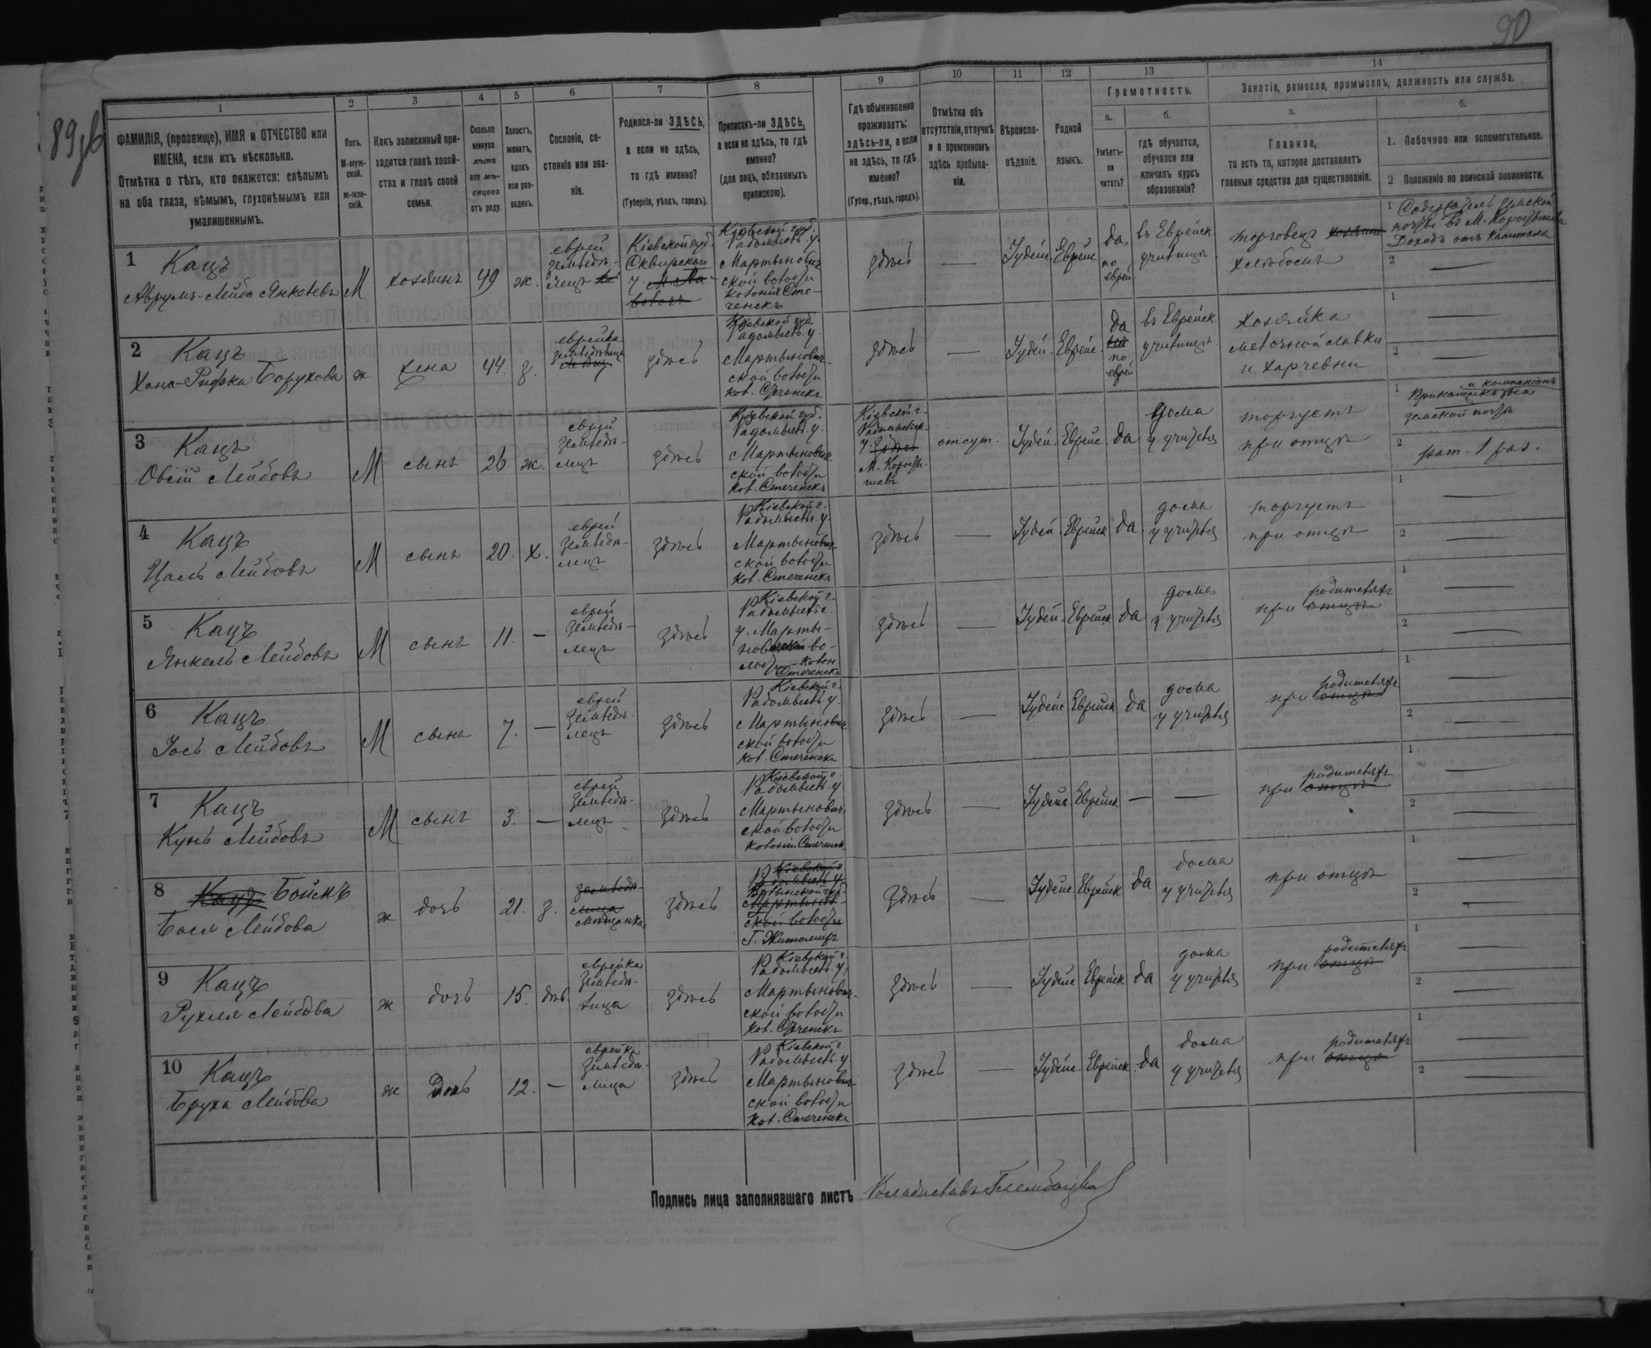 90
89об
1 2 3 4 5 6 7 8 9 10 11 12 13 14
ФАМИЛІЯ, (прозвище), ИМЯ и ОТЧЕСТВО или
ИМЕНА, если ихъ нѣсколько.
Отмѣтка о тѣхъ, кто окажется: слѣпымъ
на оба глаза, нѣмымъ, глухонѣмымъ или
умалишеннымъ.
Полъ.
М-муж-
ской.
Ж-жен-
скій.
Какъ записанный при-
ходится главѣ хозяй-
ства и главѣ своей
семьи.
Сколько
минуло
лѣтъ
или мѣ-
сяцевъ
отъ роду.
Холостъ,
женатъ,
вдовъ
или раз-
веденъ.
Сословіе, со-
стояніе или зва-
ніе.
Родился-ли ЗДѢСЬ,
а если не здѣсь,
то гдѣ именно?
(Губернія, уѣздъ, городъ).
Приписанъ-ли ЗДѢСЬ,
а если не здѣсь, то гдѣ
именно?
(для лицъ, обязанныхъ
припискою).
Гдѣ обыкновенно
проживаетъ:
здѣсь-ли, а если
не здѣсь, то гдѣ
именно?
(Губер., уѣздъ, городъ).
Отмѣтка объ
отсутствіи, отлучкѣ
и о временномъ
здѣсь пребыва-
ніи.
Вѣроиспо-
вѣданіе.
Родной
языкъ.
Грамотность.
а.
Умѣетъ-
ли
читать?
б.
гдѣ обучается,
обучался или
кончилъ курсъ
образованія?
Занятіе, ремесло, промыселъ, должность или служба.
а.
Главное,
то есть то, которое доставляетъ
главныя средства для существованія.
б.
1. Побочное или вспомогательное.
2 Положеніе по воинской повинности.
1
Кацъ
Аврумъ-Лейба Янкелевъ
М
хозяинъ
49
ж.
еврей
земледѣ-
лецъ
Кіевской губ.
Сквирскаго
у.
Кіевской губ.
Радомысл. у.
Мартынович
ской волости
колонія Сте-
ченскъ
здѣсь
—
Іудейс
Еврейс
да,
по
еврей
въ Еврейск
училищѣ
торговецъ
хлѣбомъ
1 Содержатель земской
почты въ М. Коростышевѣ
Доходъ отъ капитала
2 —
2
Кацъ
Хана-Рифка Борухова
ж
жена
44.
з.
еврейка
земледѣлица
здѣсь
Кіевской губ.
Радомысл. у.
Мартынович
ской волости
кол. Стеченскъ
здѣсь
—
Іудей.
Еврейс.
да
по
еврей
въ Еврейск
училищѣ
хозяйка
мелочной лавки
и харчевни
1 —
2 —
3
Кацъ
Овсій Лейбовъ
М
сынъ
26
ж.
еврей
земледѣ-
лецъ
здѣсь
Кіевской губ.
Радомысл. у.
Мартынович
ской волости
кол. Стеченскъ
Кіевской г.
Радомысльск.
у. здѣсь
М. Корости-
шевъ
отсут.
Іудей
Еврейс
да
дома
у учителя
торгуетъ
при отцѣ
1 и компаніонъ
Прикащикъ отца
земской почты
2 рат. 1 раз.
4
Кацъ
Цаль Лейбовъ
М
сынъ
20.
х.
еврей
земледѣ-
лецъ
здѣсь
Кіевской г.
Радомысл. у.
Мартынович
ской волости
кол. Стеченскъ
здѣсь
—
Іудей
Еврейск
да
дома
у учителя
торгуетъ
при отцѣ
1 —
2 —
5
Кацъ
Янкель Лейбовъ
М
сынъ
11.
—
еврей
земледѣ-
лецъ
здѣсь
Кіевской г.
Радомысл.
у. Марты-
новской во-
лости колон.
Стеченскъ
здѣсь
—
Іудей.
Еврейск
да
дома
у учителя
родителяхъ
при отцѣ
1 —
2 —
6
Кацъ
Іось Лейбовъ
М
сынъ
7.
—
еврей
земледѣ-
лецъ
здѣсь
Кіевской г.
Радомысл. у.
Мартынович
ской волости
кол. Стеченскъ
здѣсь
—
Іудейс
Еврейск
да
дома
у учителя
родителяхъ
при отцѣ
1 —
2 —
7
Кацъ
Кунь Лейбовъ
М
сынъ
3.
—
еврей
земледѣ-
лецъ
здѣсь
Кіевской г.
Радомысл. у
Мартынович
ской волости
колонія Стеченск
здѣсь
—
Іудейс
Еврейск
—
—
родителяхъ
при отцѣ
1 —
2 —
8
Кацъ Бойкъ
Бася Лейбова
ж
дочь
21.
з.
земледѣ-
лица
мѣщанка
здѣсь
Кіевской г.
Радомысл. у
Волынской губ
Мартынович
ской волости
Г. Житомиръ
здѣсь
—
Іудейс
Еврейск
да
дома
у учителя
при отцѣ
1 —
2 —
9
Кацъ
Рухля Лейбова
ж
дочь
15.
дѣв
еврейка
земледѣ-
лица
здѣсь
Кіевской г.
Радомысл. у
Мартынович
ской волости
кол. Стеченскъ
здѣсь
—
Іудейс
Еврейск
да
дома
у учителя
родителяхъ
при отцѣ
1 —
2 —
10
Кацъ
Бруха Лейбова
ж
дочь
12.
—
еврейка
земледѣ-
лица
здѣсь
Кіевской г.
Радомысл. у
Мартынович
ской волости
кол. Стеченскъ
здѣсь
—
Іудейс.
Еврейск
да
дома
у учителя
родителяхъ
при отцѣ
1 —
2 —
Подпись лица заполнявшаго листъ